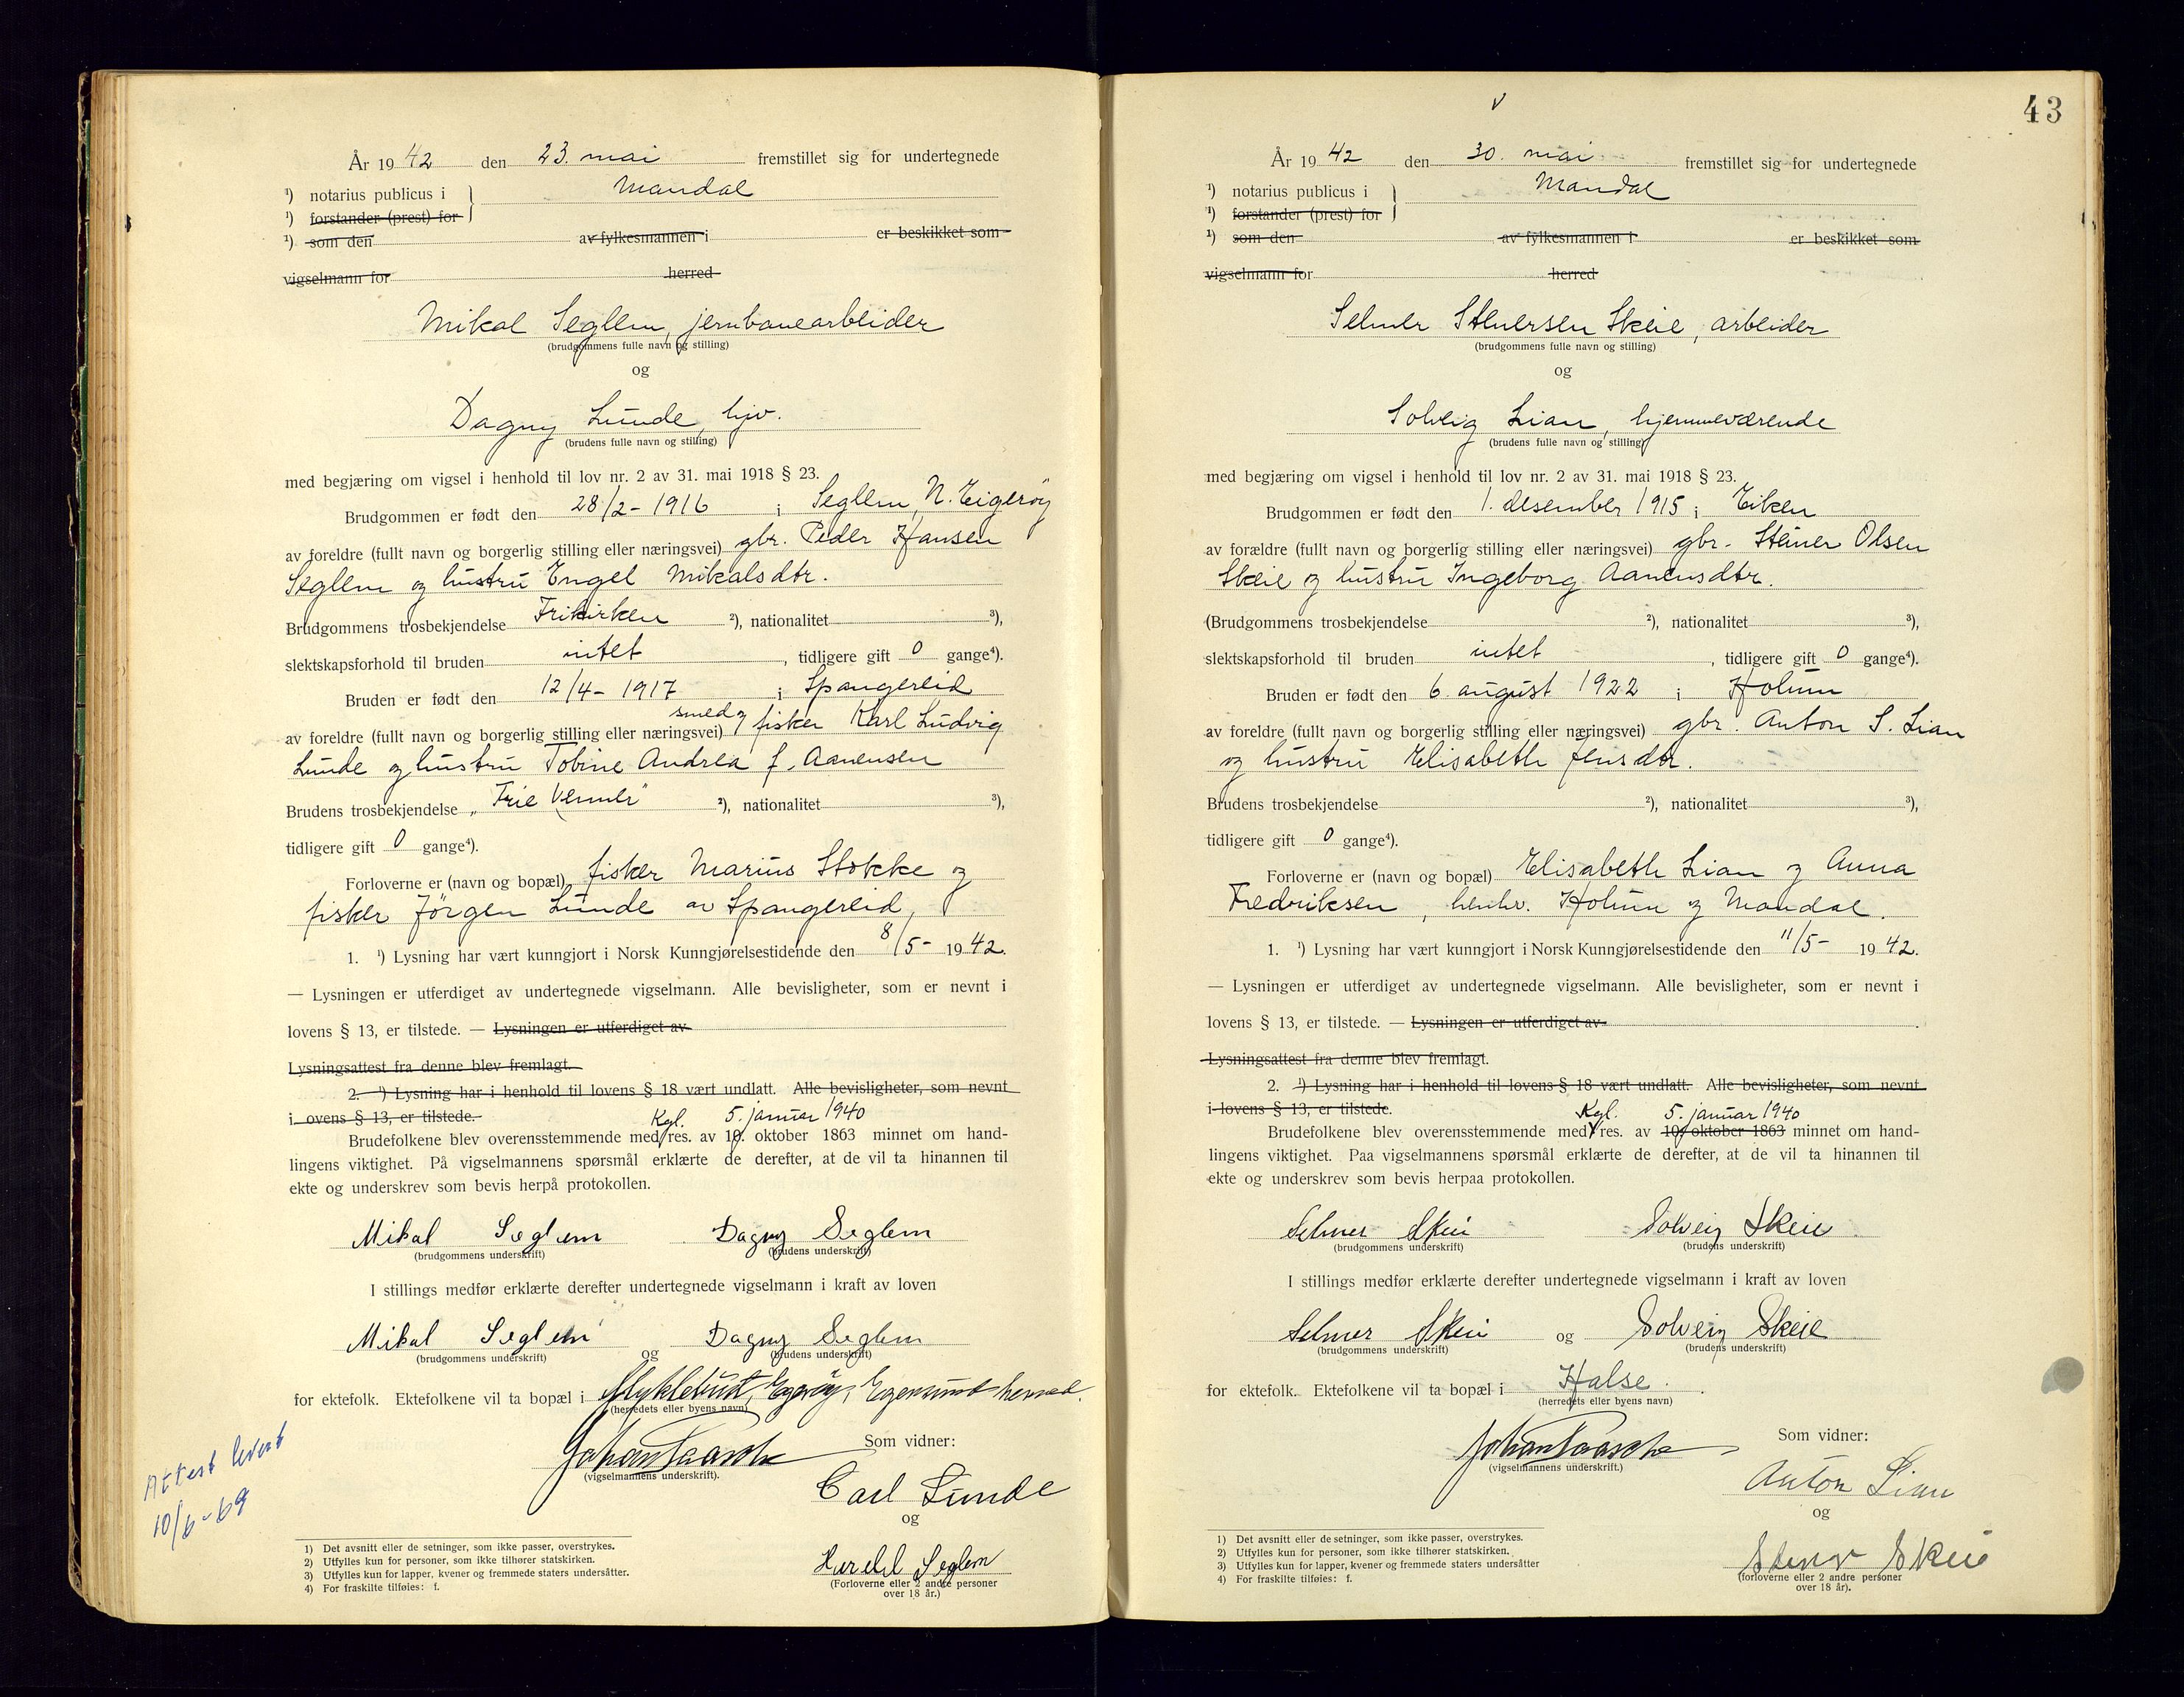 År 1942 den 23. mai fremstillet sig for undertegnede
¹) notarius publicus i } Mandal
¹) forstander (prest) for
¹) som den av fylkesmannen i er beskikket som
vigselmann for herred
Mikal Seglem, jernbanearbeider
(brudgommens fulle navn og stilling)
og
Dagny Lunde, hjv.
(brudens fulle navn og stilling)
med begjæring om vigsel i henhold til lov nr. 2 av 31. mai 1918 § 23.
Brudgommen er født den 28/2-1916 i Seglem, N. Eigerøy
av foreldre (fullt navn og borgerlig stilling eller næringsvei) gbr. Peder Hansen
Seglem og hustru Engel Mikalsdtr.
Brudgommens trosbekjendelse Frikirken ²), nationalitet ³),
slektskapsforhold til bruden intet, tidligere gift 0 gange⁴).
Bruden er født den 12/4-1917 i Spangereid
smed og
av foreldre (fullt navn og borgerlig stilling eller næringsvei) fisker Karl Ludvig
Lunde og hustru Tobine Andrea f. Aanensen
Brudens trosbekjendelse „Frie Venner" ²), nationalitet ³),
tidligere gift 0 gange⁴).
Forloverne er (navn og bopæl) fisker Marius Stokke og
fisker Jörgen Lunde av Spangereid,
1. ¹) Lysning har vært kunngjort i Norsk Kunngjørelsestidende den 8/5- 1942.
— Lysningen er utferdiget av undertegnede vigselmann. Alle bevisligheter, som er nevnt i
lovens § 13, er tilstede. — Lysningen er utferdiget av
Lysningsattest fra denne blev fremlagt.
2. ¹) Lysning har i henhold til lovens § 18 vært undlatt. Alle bevisligheter, som nevnt
i ovens § 13, er tilstede.
Kgl. 5. januar 1940
Brudefolkene blev overensstemmende med res. av 19. oktober 1863 minnet om hand-
lingens viktighet. På vigselmannens spørsmål erklærte de derefter, at de vil ta hinannen til
ekte og underskrev som bevis herpå protokollen.
Mikal Seglem Dagny Seglem
(brudgommens underskrift) (brudens underskrift)
I stillings medfør erklærte derefter undertegnede vigselmann i kraft av loven
Mikal Seglem og Dagny Seglem
(brudgommens underskrift) (brudens underskrift)
for ektefolk. Ektefolkene vil ta bopæl i Myklebust, Egerøy, Egersund herred.
(herredets eller byens navn)
Johan Paasche Som vidner:
(vigselmannens underskrift).
Carl Lunde
og
Seglem
(Forloverne eller 2 andre personer
over 18 år.)
Attest levert
10/6-69
1) Det avsnitt eller de setninger, som ikke passer, overstrykes.
2) Utfylles kun for personer, som ikke tilhører statskirken.
3) Utfylles kun for lapper, kvener og fremmede staters undersåtter.
4) For fraskilte tilføies: f.
43
År 1942 den 30. mai fremstillet sig for undertegnede
¹) notarius publicus i } Mandal
¹) forstander (prest) for
¹) som den av fylkesmannen i er beskikket som
vigselmann for herred
Selmer Stenersen Skeie, arbeider
(brudgommens fulle navn og stilling)
og
Solveig Lian, hjemmeværende
(brudens fulle navn og stilling)
med begjæring om vigsel i henhold til lov nr. 2 av 31. mai 1918 § 23.
Brudgommen er født den 1. desember 1915 i Eiken
av forældre (fullt navn og borgerlig stilling eller næringsvei) gbr. Steiner Olsen
Skeie og hustru Ingeborg Aanensdtr.
(Brudgommens trosbekjendelse ²), nationalitet ³),
slektskapsforhold til bruden intet, tidligere gift 0 gange⁴).
Bruden er født den 6. august 1922 i Holum
av foreldre (fullt navn og borgerlig stilling eller næringsvei) gbr. Anton S. Lian
og hustru Elisabeth Jensdtr.
Brudens trosbekjendelse ²), nationalitet ³),
tidligere gift 0 gange⁴).
Forloverne er (navn og bopæl) Elisabeth Lian og Anna
Fredriksen, henhv. Holum og Mandal.
1. ¹) Lysning har vært kunngjort i Norsk Kunngjørelsestidende den 11/5- 1942.
— Lysningen er utferdiget av undertegnede vigselmann. Alle bevisligheter, som er nevnt i
lovens § 13, er tilstede. — Lysningen er utferdiget av .
Lysningsattest fra denne blev fremlagt.
2. ¹) Lysning har i henhold til lovens § 18 vært undlatt. Alle bevisligheter, som nevnt
i lovens § 13, er tilstede.
Kgl. 5. januar 1940
Brudefolkene blev overensstemmende med res. av 10. oktober 1863 minnet om hand-
lingens viktighet. Paa vigselmannens spørsmål erklærte de derefter, at de vil ta hinannen til
ekte og underskrev som bevis herpaa protokollen.
Selmer Skeie Solveig Skeie
(brudgommens underskrift) (brudens underskrift)
I stillings medfør erklærte derefter undertegnede vigselmann i kraft av loven
Selmer Skeie og Solveig Skeie
(brudgommens underskrift) (brudens underskrift)
for ektefolk. Ektefolkene vil ta bopæl i Halse.
(herredets eller byens navn)
Johan Paasche Som vidner:
(vigselmannens underskrift.)
Anton Lian
og
Skeie
(forloverne eller 2 andre personer
over 18 år).
1) Det avsnitt eller de setninger, som ikke passer, overstrykes.
2) Utfylles kun for personer, som ikke tilhører statskirken.
3) Utfylles kun for lapper, kvener og fremmede staters undersåtter
4) For fraskilte tilføies: f.